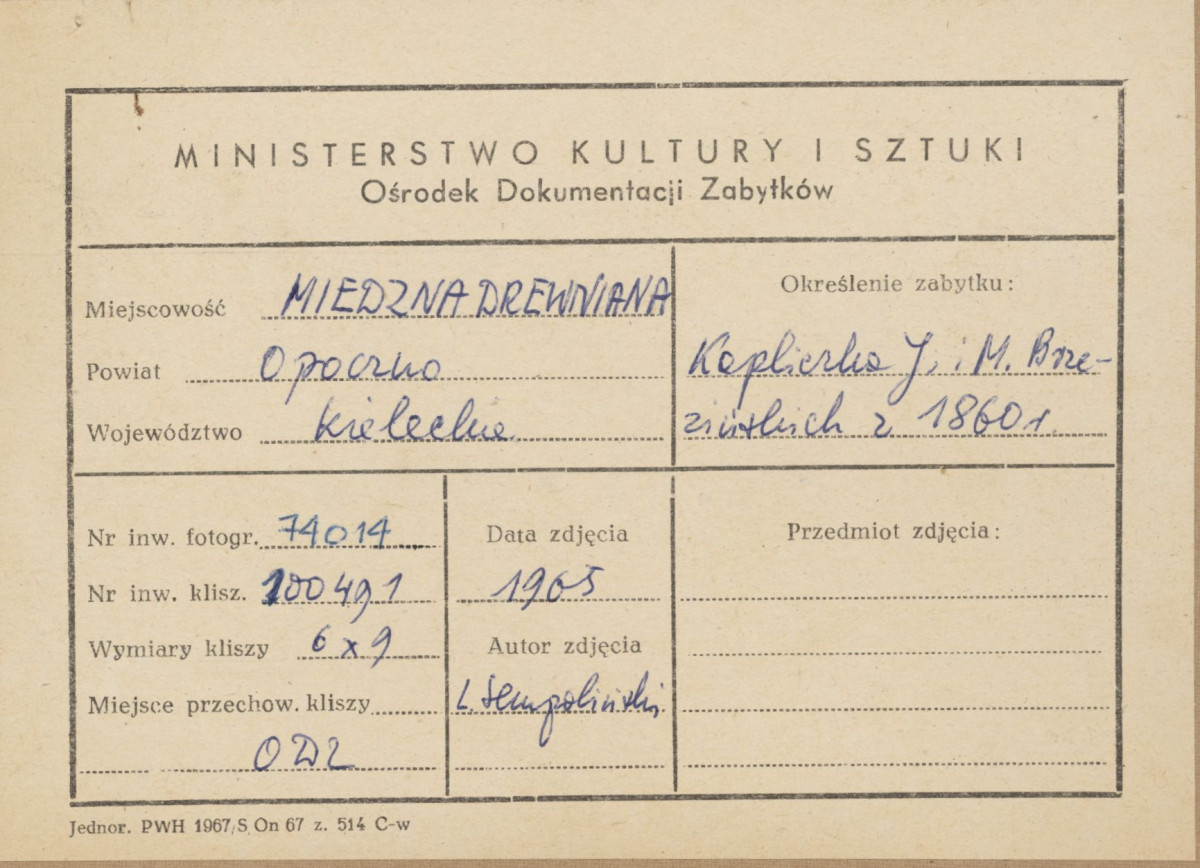 MINISTERSTWO KULTURY I SZTUKI
Ośrodek Dokumentacji Zabytków
Miejscowość MIEDZNA DREWNIANA
Powiat Opoczno
Województwo Kieleckie
Określenie zabytku:
Kapliczka J. i M. Brze-
zińskich z 1860 r.
Nr inw. fotogr. 74014
Nr inw. klisz. 100491
Wymiary kliszy 6 x 9
Miejsce przechow. kliszy
ODZ
Data zdjęcia
1965
Autor zdjęcia
L. Sempoliński
Przedmiot zdjęcia:
Jednor. PWH 1967/S On 67 z. 514 C-w